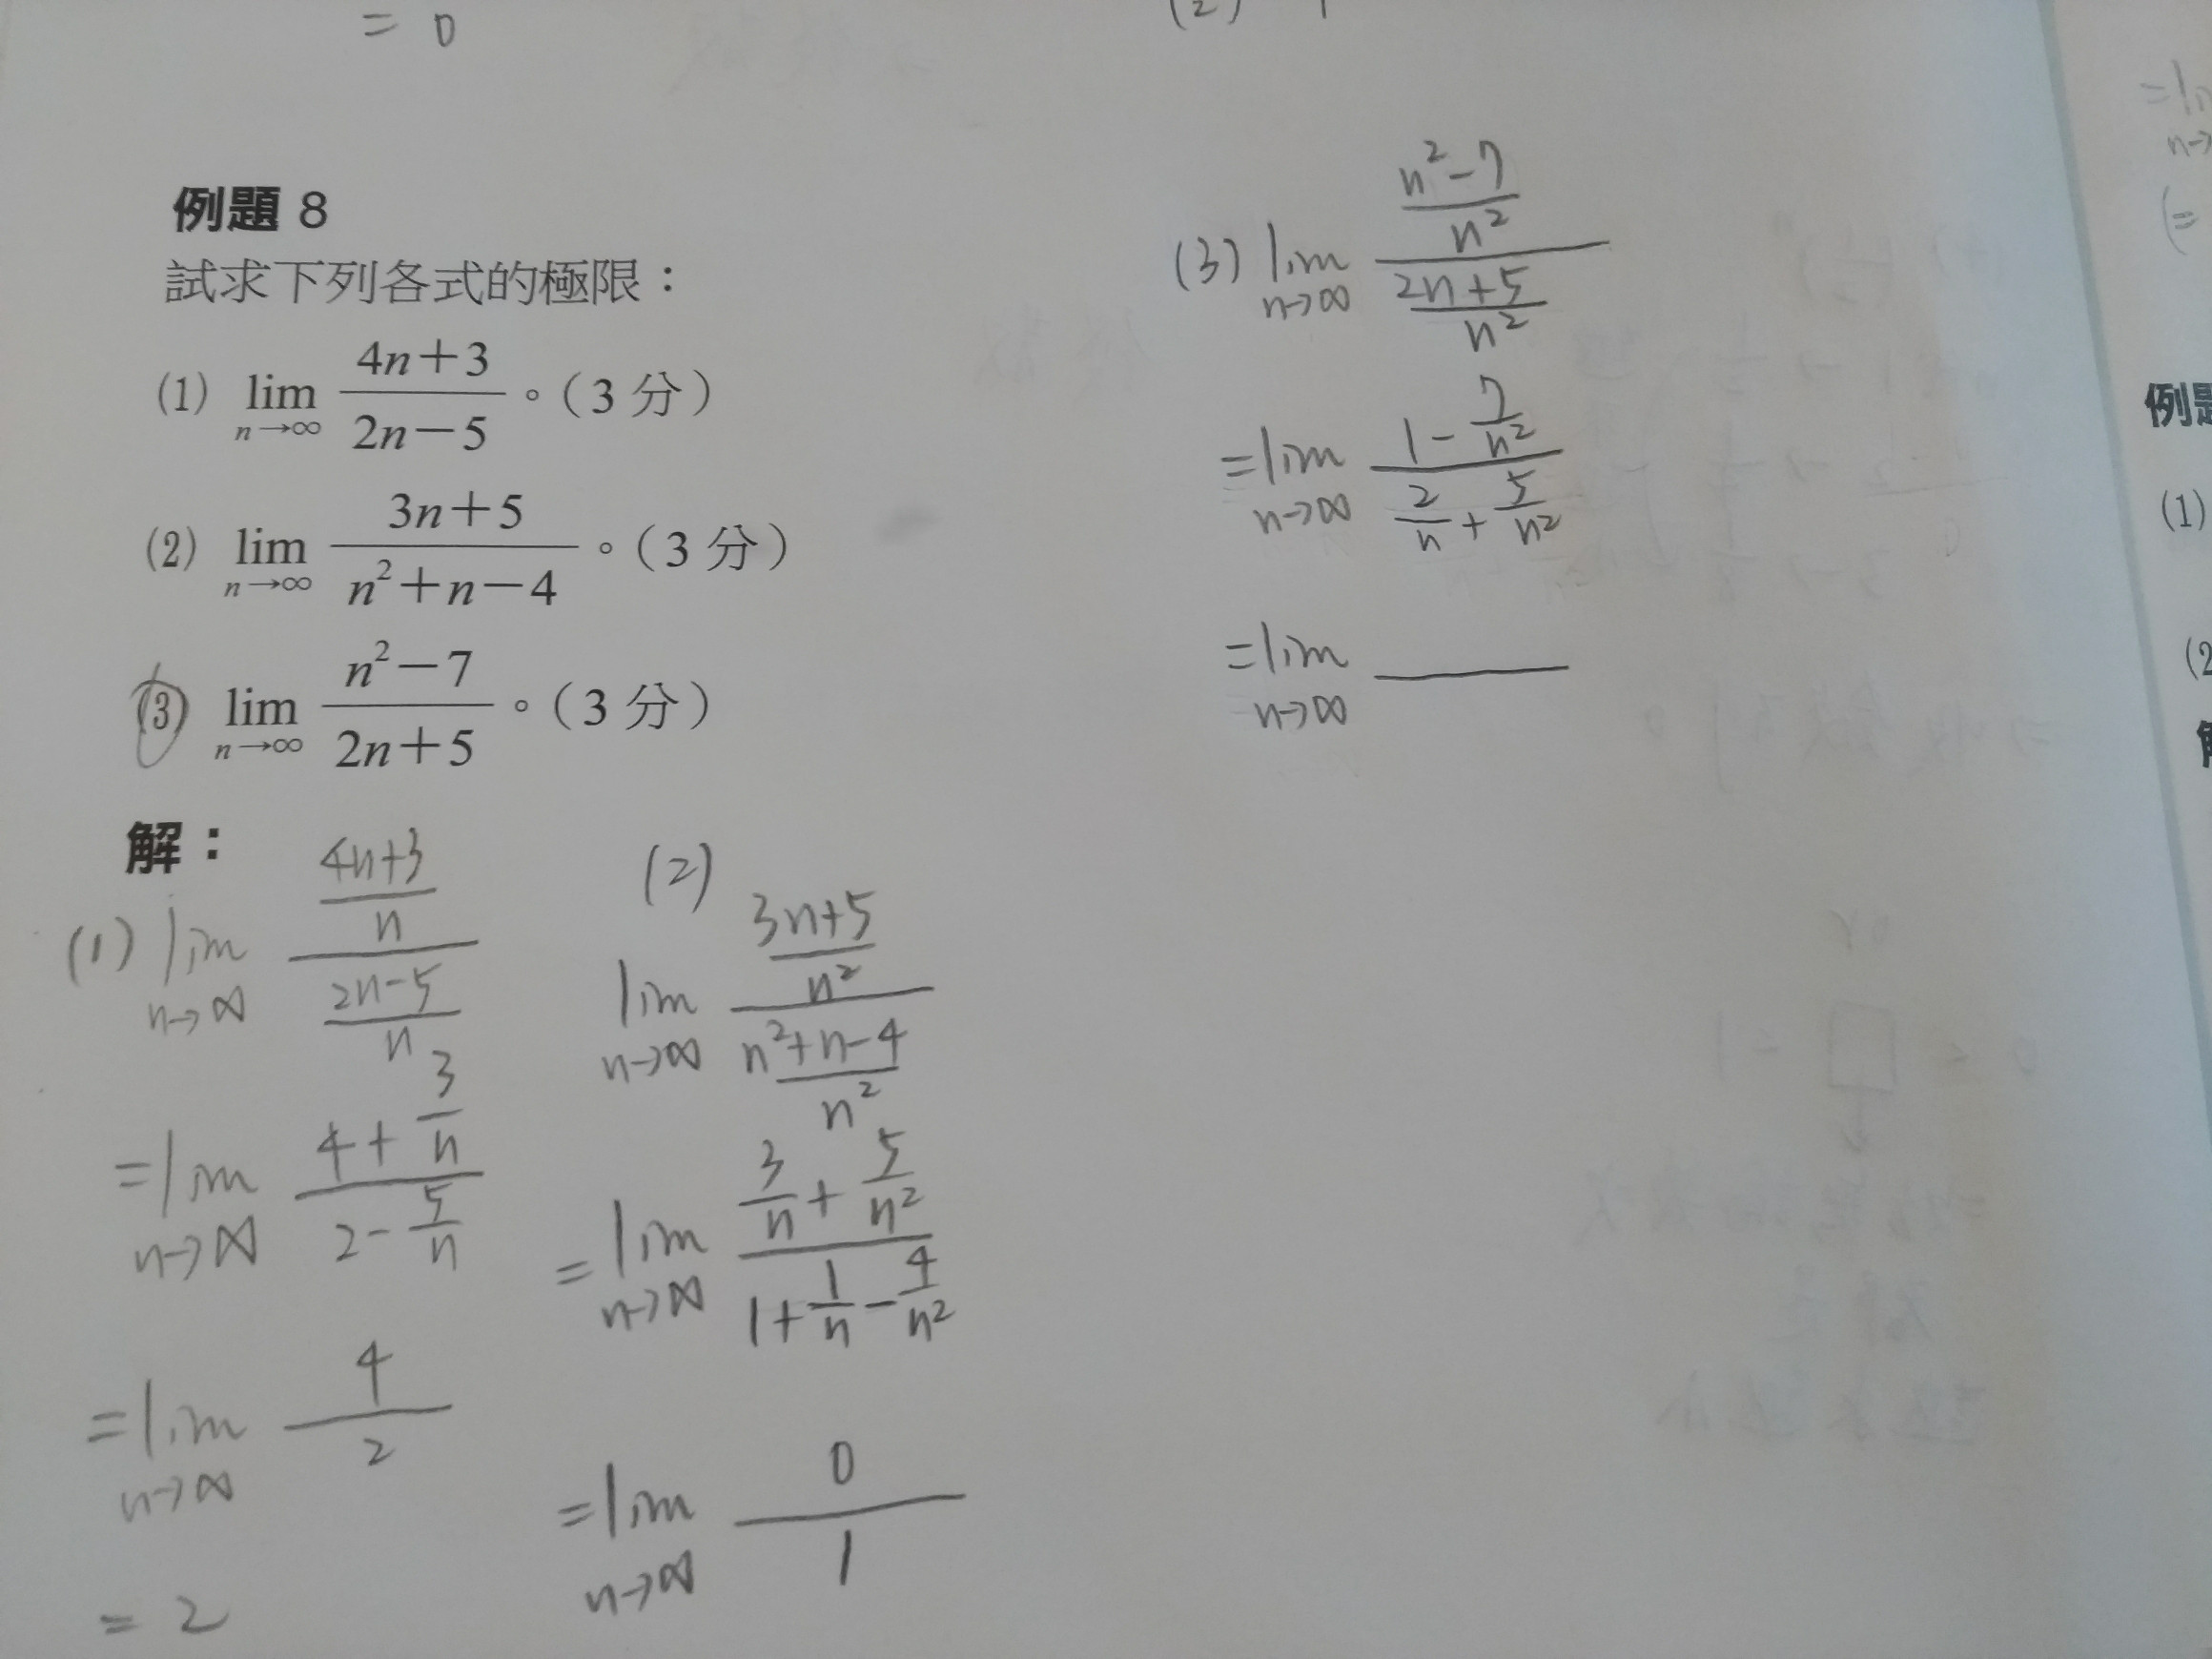 = 0
(2)
例題 8
試求下列各式的極限：
(1) lim n→∞ (4n+3)/(2n−5)。(3 分)
(2) lim n→∞ (3n+5)/(n²+n−4)。(3 分)
(3) lim n→∞ (n²−7)/(2n+5)。(3 分)
解：
(1) lim n→∞ ((4n+3)/n)/((2n-5)/n)
= lim n→∞ (4+3/n)/(2-5/n)
= lim n→∞ 4/2
= 2
(2)
lim n→∞ ((3n+5)/n²)/((n²+n-4)/n²)
= lim n→∞ (3/n+5/n²)/(1+1/n-4/n²)
= lim n→∞ 0/1
(3) lim n→∞ ((n²-7)/n²)/((2n+5)/n²)
= lim n→∞ (1-7/n²)/(2/n+5/n²)
= lim n→∞
n→
例題
(1)
(2